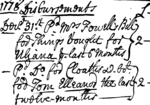 1778 Disbursments £
Decbr. 31st. Pd. Mrs Powells Bill
for Things bought for
Eliana ye. last 6 months
Do. Pd. Do. for Cloaths &c. for
Tom Eleanor the last
twelve months